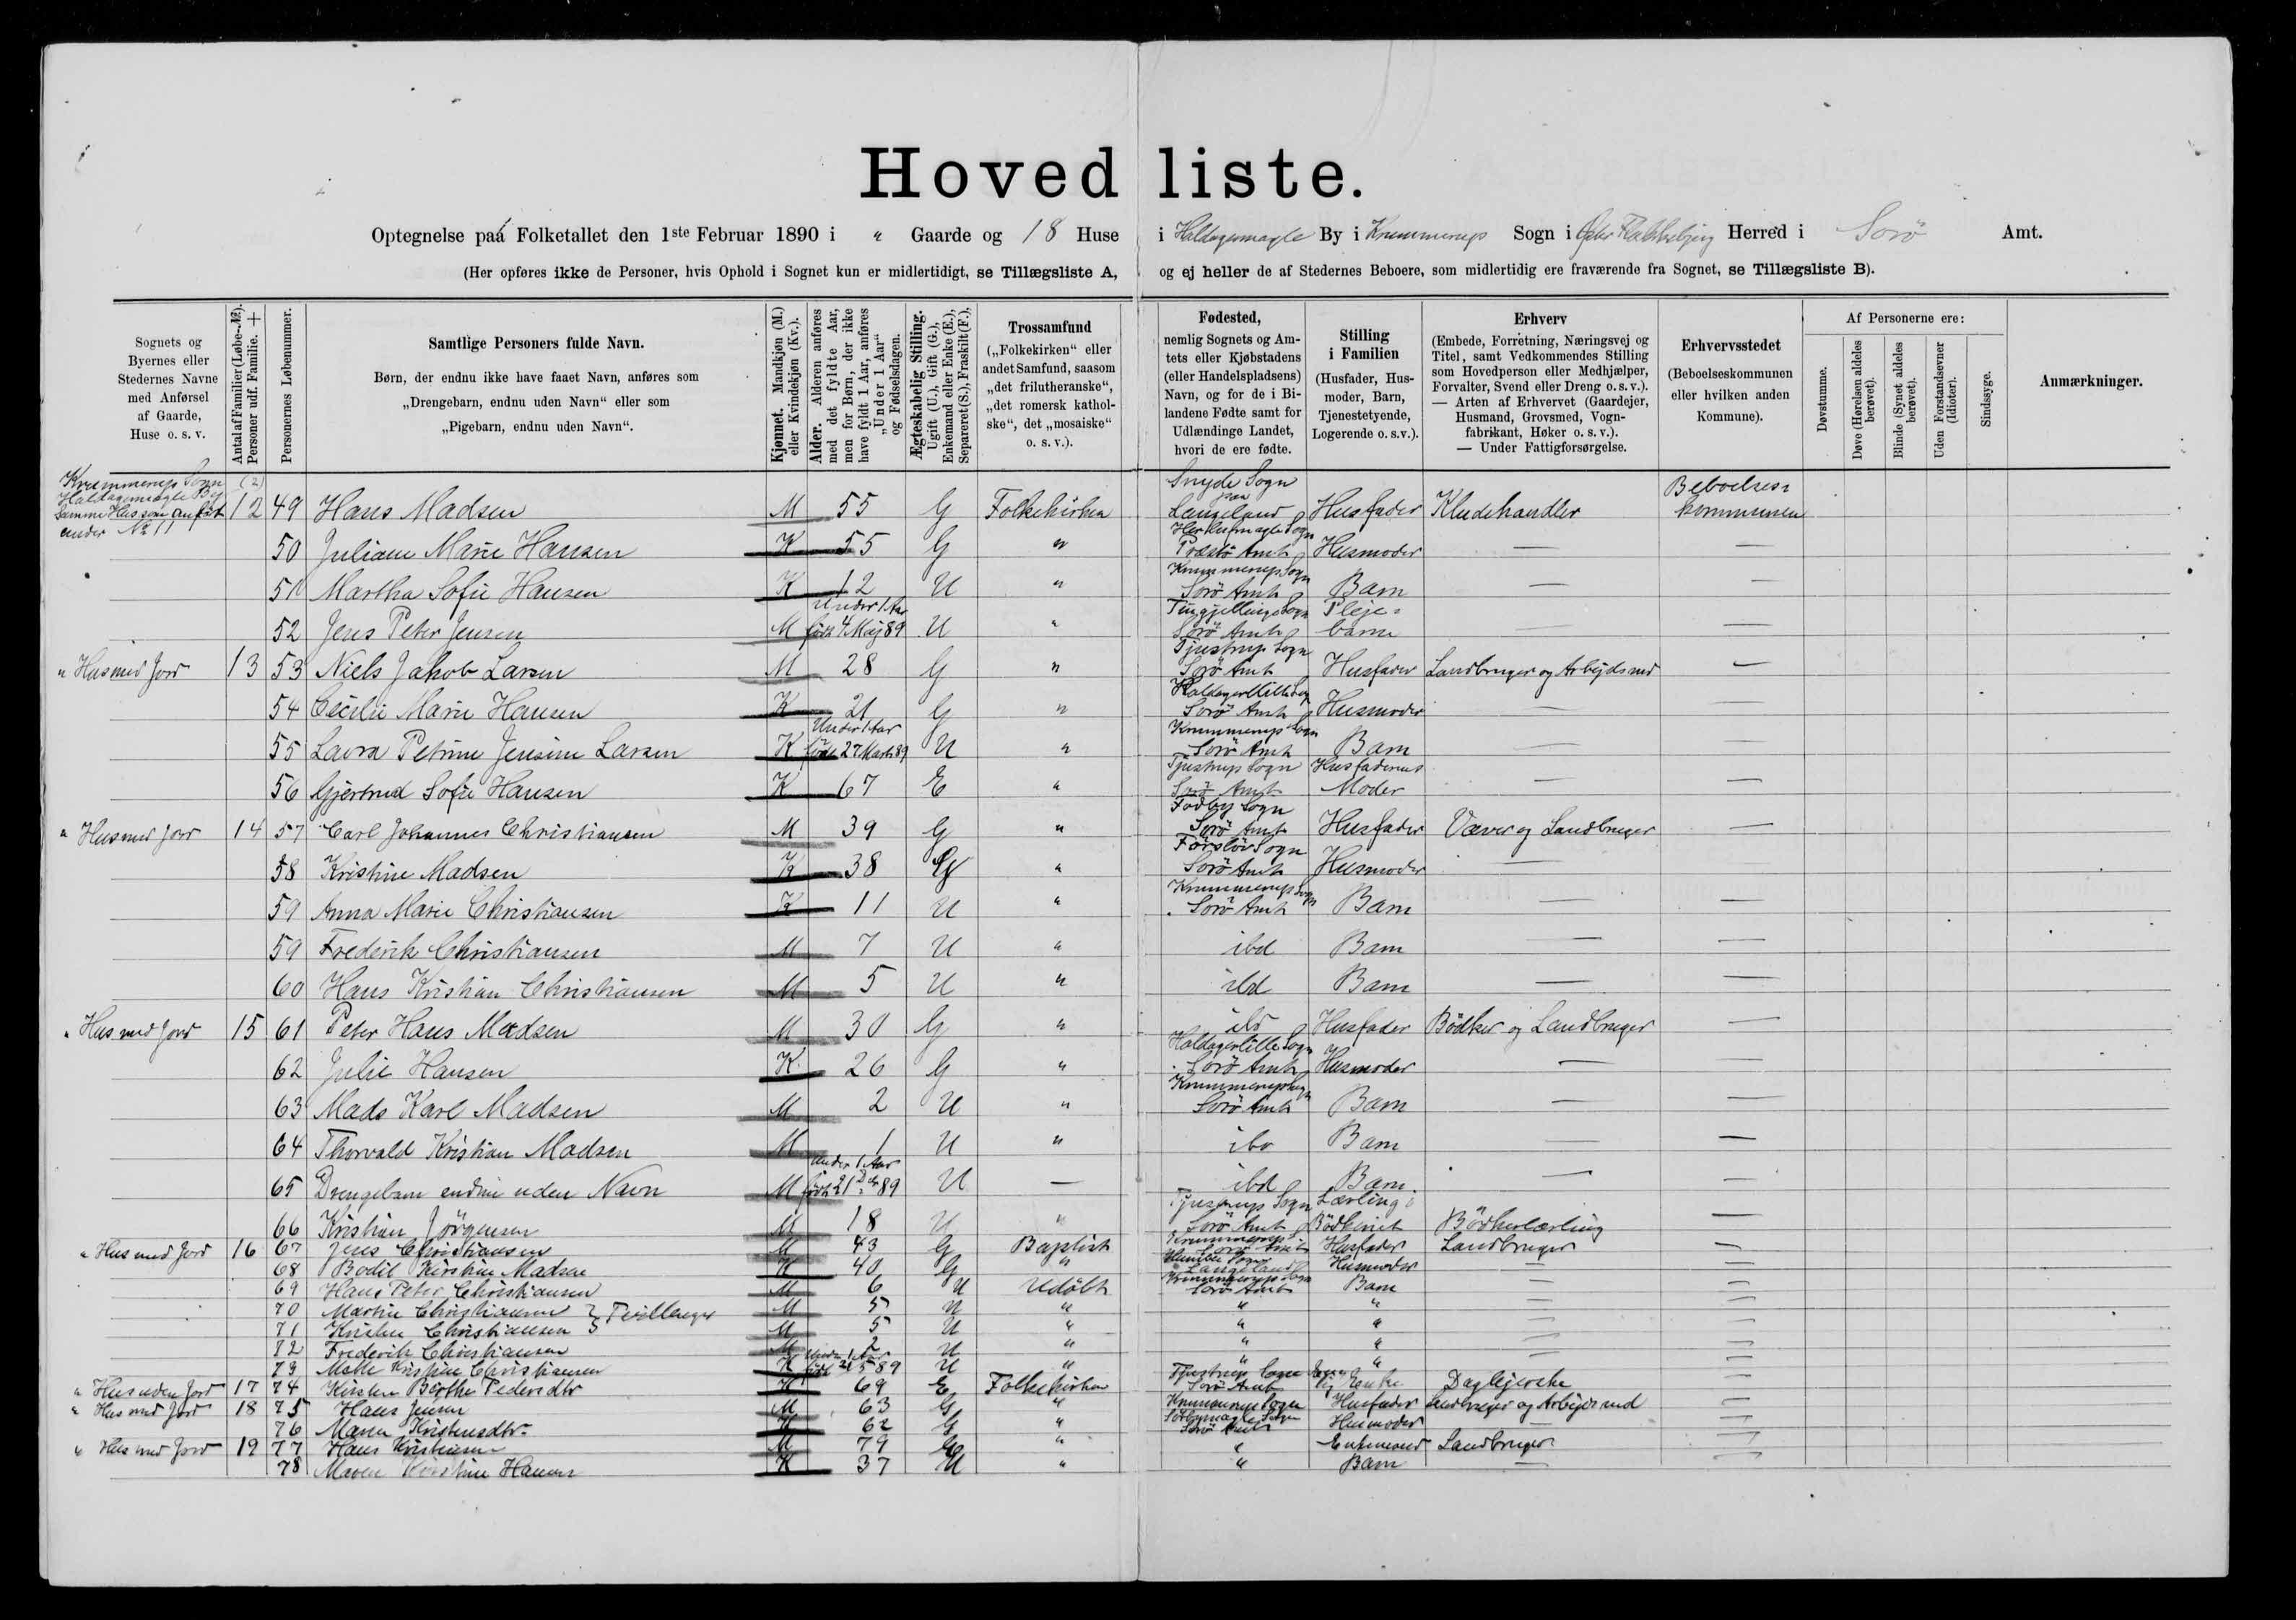 Hovedliste.
Optegnelse paa Folketallet den 1ste Februar 1890 i " Gaarde og 18 Huse i Haldagermagle By i Krummerup Sogn i Øster Flakkebjerg Herred i Sorö Amt.
(Her opføres ikke de Personer, hvis Ophold i Sognet kun er midlertidigt, se Tillægsliste A, og ej heller de af Stedernes Beboere, som midlertidig ere fraværende fra Sognet, se Tillægsliste B).
Sognets og Byernes eller Stedernes Navne med Anførsel af Gaarde, Huse o. s. v.
Antal af Familier (Løbe-№). Personer udf. Familie. +
Personernes Løbenummer.
Samtlige Personers fulde Navn.
Børn, der endnu ikke have faaet Navn, anføres som
„Drengebarn, endnu uden Navn“ eller som
„Pigebarn, endnu uden Navn“.
Kjønnet. Mandkjøn (M.) eller Kvindekjøn (Kv.).
Alder. Alderen anføres med det fyldte Aar, men for Børn, der ikke have fyldt 1 Aar, anføres „Under 1 Aar“ og Fødselsdagen.
Ægteskabelig Stilling. Ugift (U.), Gift (G.), Enkemand eller Enke (E.), Separeret (S.), Fraskilt (F.).
Trossamfund
(„Folkekirken“ eller andet Samfund, saasom „det frilutheranske“, „det romersk katholske“, det „mosaiske“ o. s. v.).
Fødested,
nemlig Sognets og Amtets eller Kjøbstadens (eller Handelspladsens) Navn, og for de i Bilandene Fødte samt for Udlændinge Landet, hvori de ere fødte.
Stilling i Familien
(Husfader, Husmoder, Barn, Tjenestetyende, Logerende o. s. v.).
Erhverv
(Embede, Forretning, Næringsvej og Titel, samt Vedkommendes Stilling som Hovedperson eller Medhjælper, Forvalter, Svend eller Dreng o. s. v.).
— Arten af Erhvervet (Gaardejer, Husmand, Grovsmed, Vognfabrikant, Høker o. s. v.).
— Under Fattigforsørgelse.
Erhvervsstedet
(Beboelseskommunen eller hvilken anden Kommune).
Af Personerne ere:
Døvstumme.
Døve (Hørelsen aldeles berøvet).
Blinde (Synet aldeles berøvet).
Uden Forstandsevner (Idioter).
Sindssyge.
Anmærkninger.
Krummerup Sogn Haldagermagle By Samme Hus som anført under № 11 (2) 12 49 Hans Madsen M 55 G Folkekirken Snøde Sogn paa Langeland Husfader Kludehandler Beboelseskommunen
50 Juliane Marie Hansen K 55 G " Herlufmagle Sogn Præstö Amt Husmoder — —
51 Martha Sofie Hansen K 12 U " Krummerup Sogn Sorö Amt Barn — —
52 Jens Peter Jensen M Under 1 Aar född 4 Maj 89 U " Tingjellinge Sogn Sorö Amt Plejebarn — —
" Hus med Jord 13 53 Niels Jakob Larsen M 28 G " Tjustrup Sogn Sorö Amt Husfader Landbruger og Arbejdsmd —
54 Cecilie Marie Hansen K 21 G " Haldagerlille Sogn Sorö Amt Husmoder — —
55 Laura Petrine Jensine Larsen K Under 1 Aar född 27 Marts 89 U " Krummerup Sogn Sorö Amt Barn — —
56 Gjertrud Sofie Hansen K 67 E " Tjustrup Sogn Sorö Amt Husfaderens Moder — —
" Hus med Jord 14 57 Carl Johannes Christiansen M 39 G " Fodby Sogn Sorö Amt Husfader Væver og Landbruger —
58 Kristine Madsen K 38 G " Förslöv Sogn Sorö Amt Husmoder — —
59 Anna Marie Christiansen K 11 U " Krummerup Sogn Sorö Amt Barn — —
59 Frederik Christiansen M 7 U " ibd Barn — —
60 Hans Kristian Christiansen M 5 U " ibd Barn — —
" Hus med Jord 15 61 Peter Hans Madsen M 30 G " ibd Husfader Bödker og Landbruger —
62 Julie Hansen K 26 G " Haldagerlille Sogn Sorö Amt Husmoder — —
63 Mads Karl Madsen M 2 U " Krummerup Sogn Sorö Amt Barn — —
64 Thorvald Kristian Madsen M 1 U " ibd Barn — —
65 Drengebarn endnu uden Navn M Under 1 Aar född 21 Dc 89 U — ibd Barn — —
66 Kristian Jörgensen M 18 U " Tjustrup Sogn Sorö Amt Lærling i Bödkeriet Bödkerlærling —
" Hus med Jord 16 67 Jens Christiansen M 43 G Baptist Krummerup Sorö Amt Husfader Landbruger —
68 Bodil Kirstine Madsen K 40 G " Sogn Langeland Husmoder — —
69 Hans Peter Christiansen M 6 U Udöbt Krummerup Sogn Sorö Amt Barn — —
70 Martin Christiansen } Tvillinger M 5 U " " " — —
71 Kristen Christiansen } M 5 U " " " — —
72 Frederik Christiansen M 2 U " " " — —
73 Mette Kristine Christiansen K Under 1 Aar född 21 5 89 U " " " — —
" Hus uden Jord 17 74 Kirsten Birthe Pedersdtr K 69 E Folkekirken Tjustrup Sogn Sorö Amt Enke Daglejerske —
" Hus med Jord 18 75 Hans Jensen M 63 G " Krummerup Sogn Husfader Landbruger og Arbejdsmd —
76 Maren Kristensdtr K 62 G " Sörbymagle Sogn Sorö Amt Husmoder — —
" Hus med Jord 19 77 Hans Kristensen M 79 E " " Enkemand Landbruger —
78 Maren Kirstine Hansen K 37 U " " Barn — —